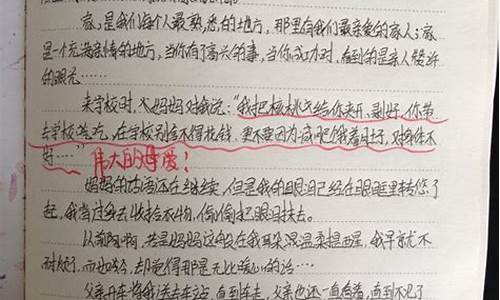 家，是我们每个人最熟悉的地方，那里有我们最亲爱的家人；家
是一个充满亲情的地方，当你有了高兴的事，当你成功时，看到的是亲人赞许
的眼光……
来学校时，妈妈对我说："我把核桃给你夹开、剥好，你带
去学校吃，在学校别舍不得花钱，更不要因为减肥饿着肚子，对身体不
好…"伟大的母爱！
妈妈的话还在继续，但是我的眼泪已经在眼眶里转悠了
起，我背过身去收拾不物，偷偷把眼泪抹去。
以前啊，若是妈妈这般在我耳朵温柔提醒，我早就不
耐烦了，而如今，却觉得那是无比暖心的话……
父亲开车将我送去车站，直到车走，父亲也还一直看着，直到不见了